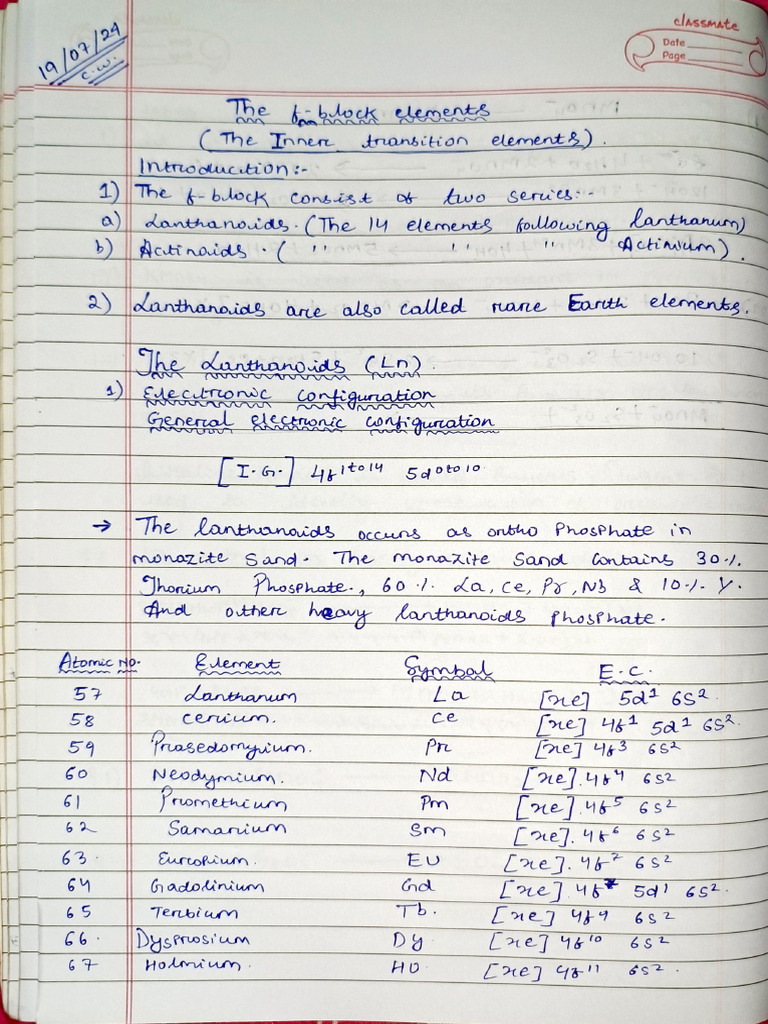 classmate
Date
Page
19/07/24
C.W.
The f-block elements
(The Inner transition elements).
Introduction:-
1) The f-block consist of two series:-
a) Lanthanoids. (The 14 elements following lanthanum)
b) Actinoids. ( " " " Actinium).
2) Lanthanoids are also called rare Earth elements.
The Lanthanoids (Ln).
1) Electronic configuration
General electronic configuration
[I.G.] 4f¹ᵗᵒ¹⁴ 5d⁰ᵗᵒ¹⁰
→ The lanthanoids occurs as ortho Phosphate in
monazite Sand. The monazite Sand contains 30%
Thorium Phosphate., 60% La, Ce, Pr, Nb & 10% Y.
And other heavy lanthanoids phosphate.
Atomic no. Element Symbol E.C.
57 Lanthanum La [xe] 5d¹ 6s².
58 cerium. Ce [xe] 4f¹ 5d¹ 6s².
59 Prasedomyium. Pr [xe] 4f³ 6s²
60 Neodymium. Nd [xe]. 4f⁴ 6s²
61 Promethium Pm [xe]. 4f⁵ 6s²
62 Samarium Sm [xe]. 4f⁶ 6s²
63. Europium. EU [xe]. 4f⁷ 6s²
64 Gadolinium Gd [xe] 4f⁷ 5d¹ 6s².
65 Terbium Tb. [xe] 4f⁹ 6s²
66. Dysprosium Dy [xe] 4f¹⁰ 6s²
67 Holmium. HO [xe] 4f¹¹ 6s².